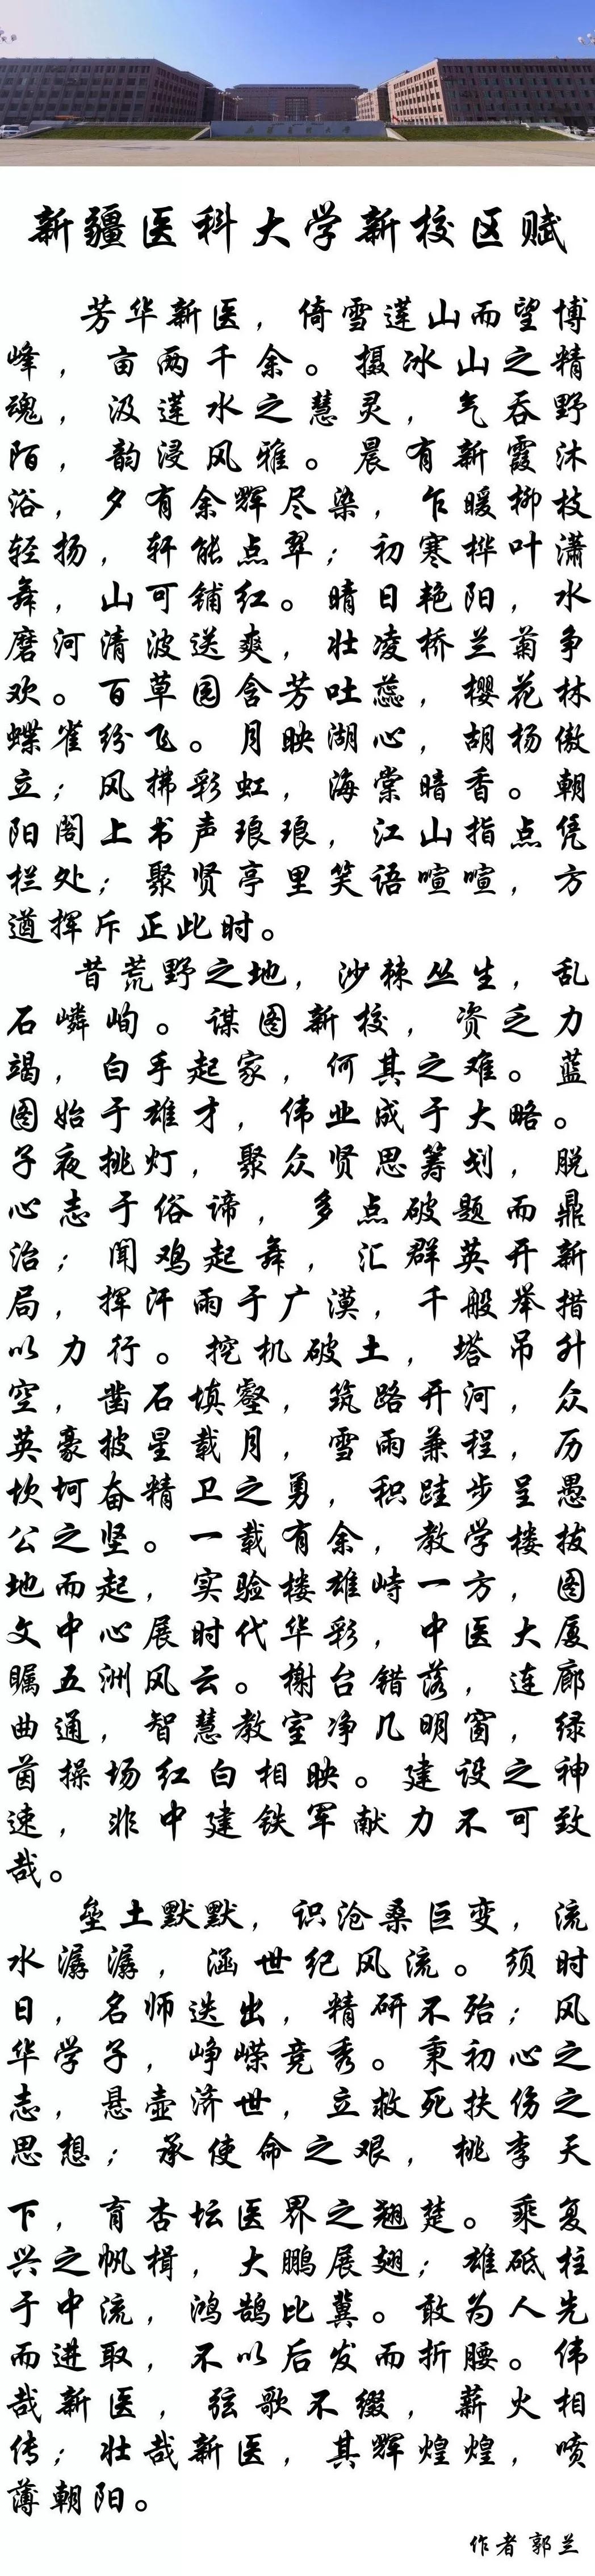 新疆医科大学新校区赋
芳华新医，倚雪莲山而望博
峰，亩两千余。摄冰山之精
魂，汲莲水之慧灵，气吞野
陌，韵浸风雅。晨有新霞沐
浴，夕有余辉尽染，乍暖柳枝
轻扬，轩能点翠；初寒桦叶潇
舞，山可铺红。晴日艳阳，水
磨河清波送爽，壮凌桥兰菊争
欢。百草园含芳吐蕊，樱花林
蝶雀纷飞。月映湖心，胡杨傲
立；风拂彩虹，海棠暗香。朝
阳阁上书声琅琅，江山指点凭
栏处；聚贤亭里笑语喧喧，方
遒挥斥正此时。
昔荒野之地，沙棘丛生，乱
石嶙峋。谋图新校，资乏力
竭，白手起家，何其之难。蓝
图始于雄才，伟业成于大略。
子夜挑灯，聚众贤思筹划，脱
心志于俗谛，多点破题而鼎
治；闻鸡起舞，汇群英开新
局，挥汗雨于广漠，千般举措
以力行。挖机破土，塔吊升
空，凿石填壑，筑路开河，众
英豪披星载月，雪雨兼程，历
坎坷奋精卫之勇，积跬步呈愚
公之坚。一载有余，教学楼拔
地而起，实验楼雄峙一方，图
文中心展时代华彩，中医大厦
瞩五洲风云。榭台错落，连廊
曲通，智慧教室净几明窗，绿
茵操场红白相映。建设之神
速，非中建铁军献力不可致
哉。
垒土默默，识沧桑巨变，流
水潺潺，涵世纪风流。须时
日，名师迭出，精研不殆；风
华学子，峥嵘竞秀。秉初心之
志，悬壶济世，立救死扶伤之
思想；承使命之艰，桃李天
下，育杏坛医界之翘楚。乘复
兴之帆楫，大鹏展翅；雄砥柱
于中流，鸿鹄比冀。敢为人先
而进取，不以后发而折腰。伟
哉新医，弦歌不缀，薪火相
传；壮哉新医，其辉煌煌，喷
薄朝阳。
作者 郭兰